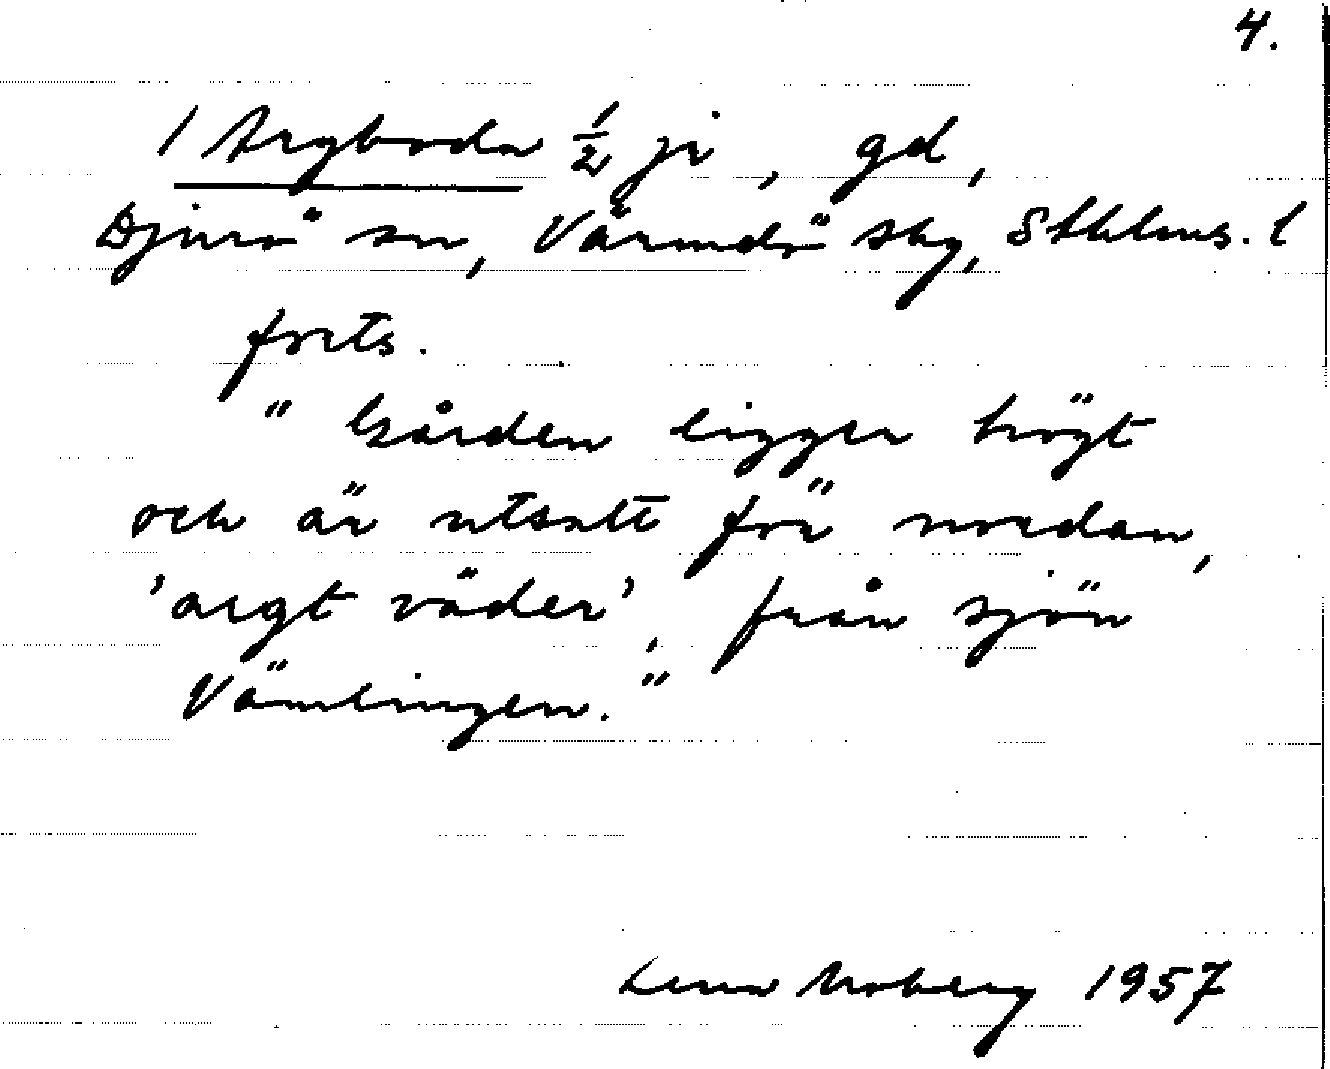 4.
1 Argboda ½ jr, gd,
Djurö sn, Värmdö skg, Sthlms. l
forts.
"Gården ligger högt
och är utsatt för nordan,
'argt väder', från sjön
Vämlingen."
Lena Moberg 1957